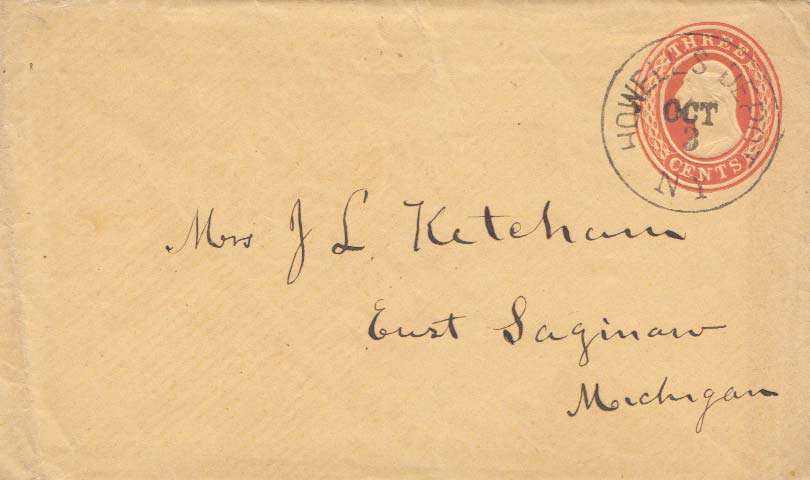 THREE
CENTS
HOWELLS DEPOT
OCT
3
N Y
Mrs J L Ketcham
East Saginaw
Michigan